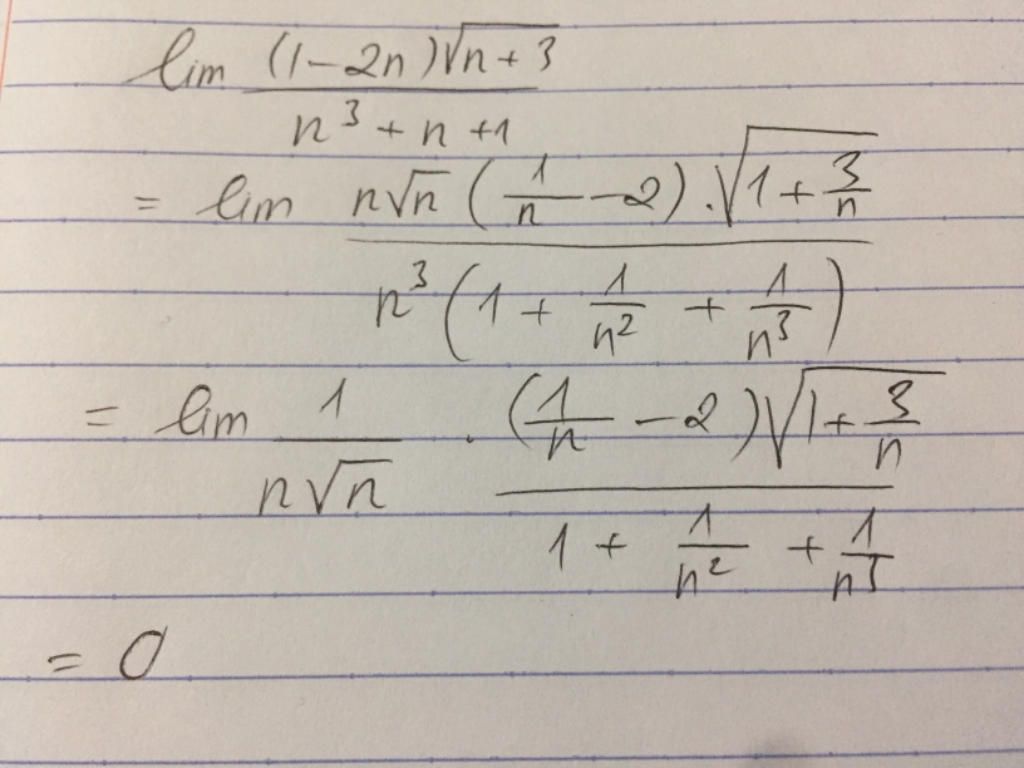 lim ((1-2n)√(n+3))/(n³+n+1)
= lim (n√n(1/n-2).√(1+3/n))/(n³(1+1/n²+1/n³))
= lim 1/(n√n) . ((1/n-2)√(1+3/n))/(1+1/n²+1/n³)
= 0